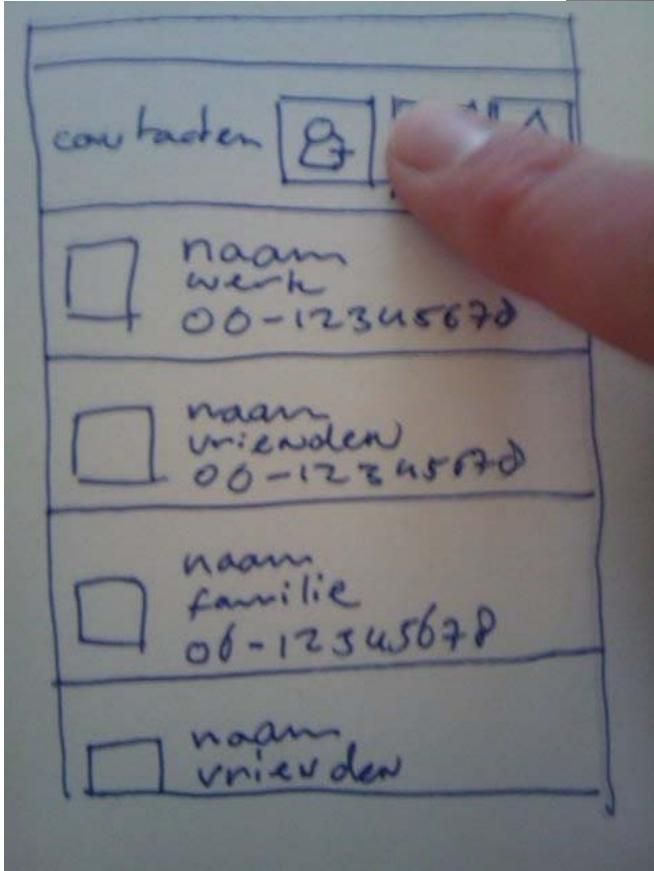 contacten
naam
werk
06-12345678
naam
vrienden
06-12345678
naam
familie
06-12345678
naam
vrienden